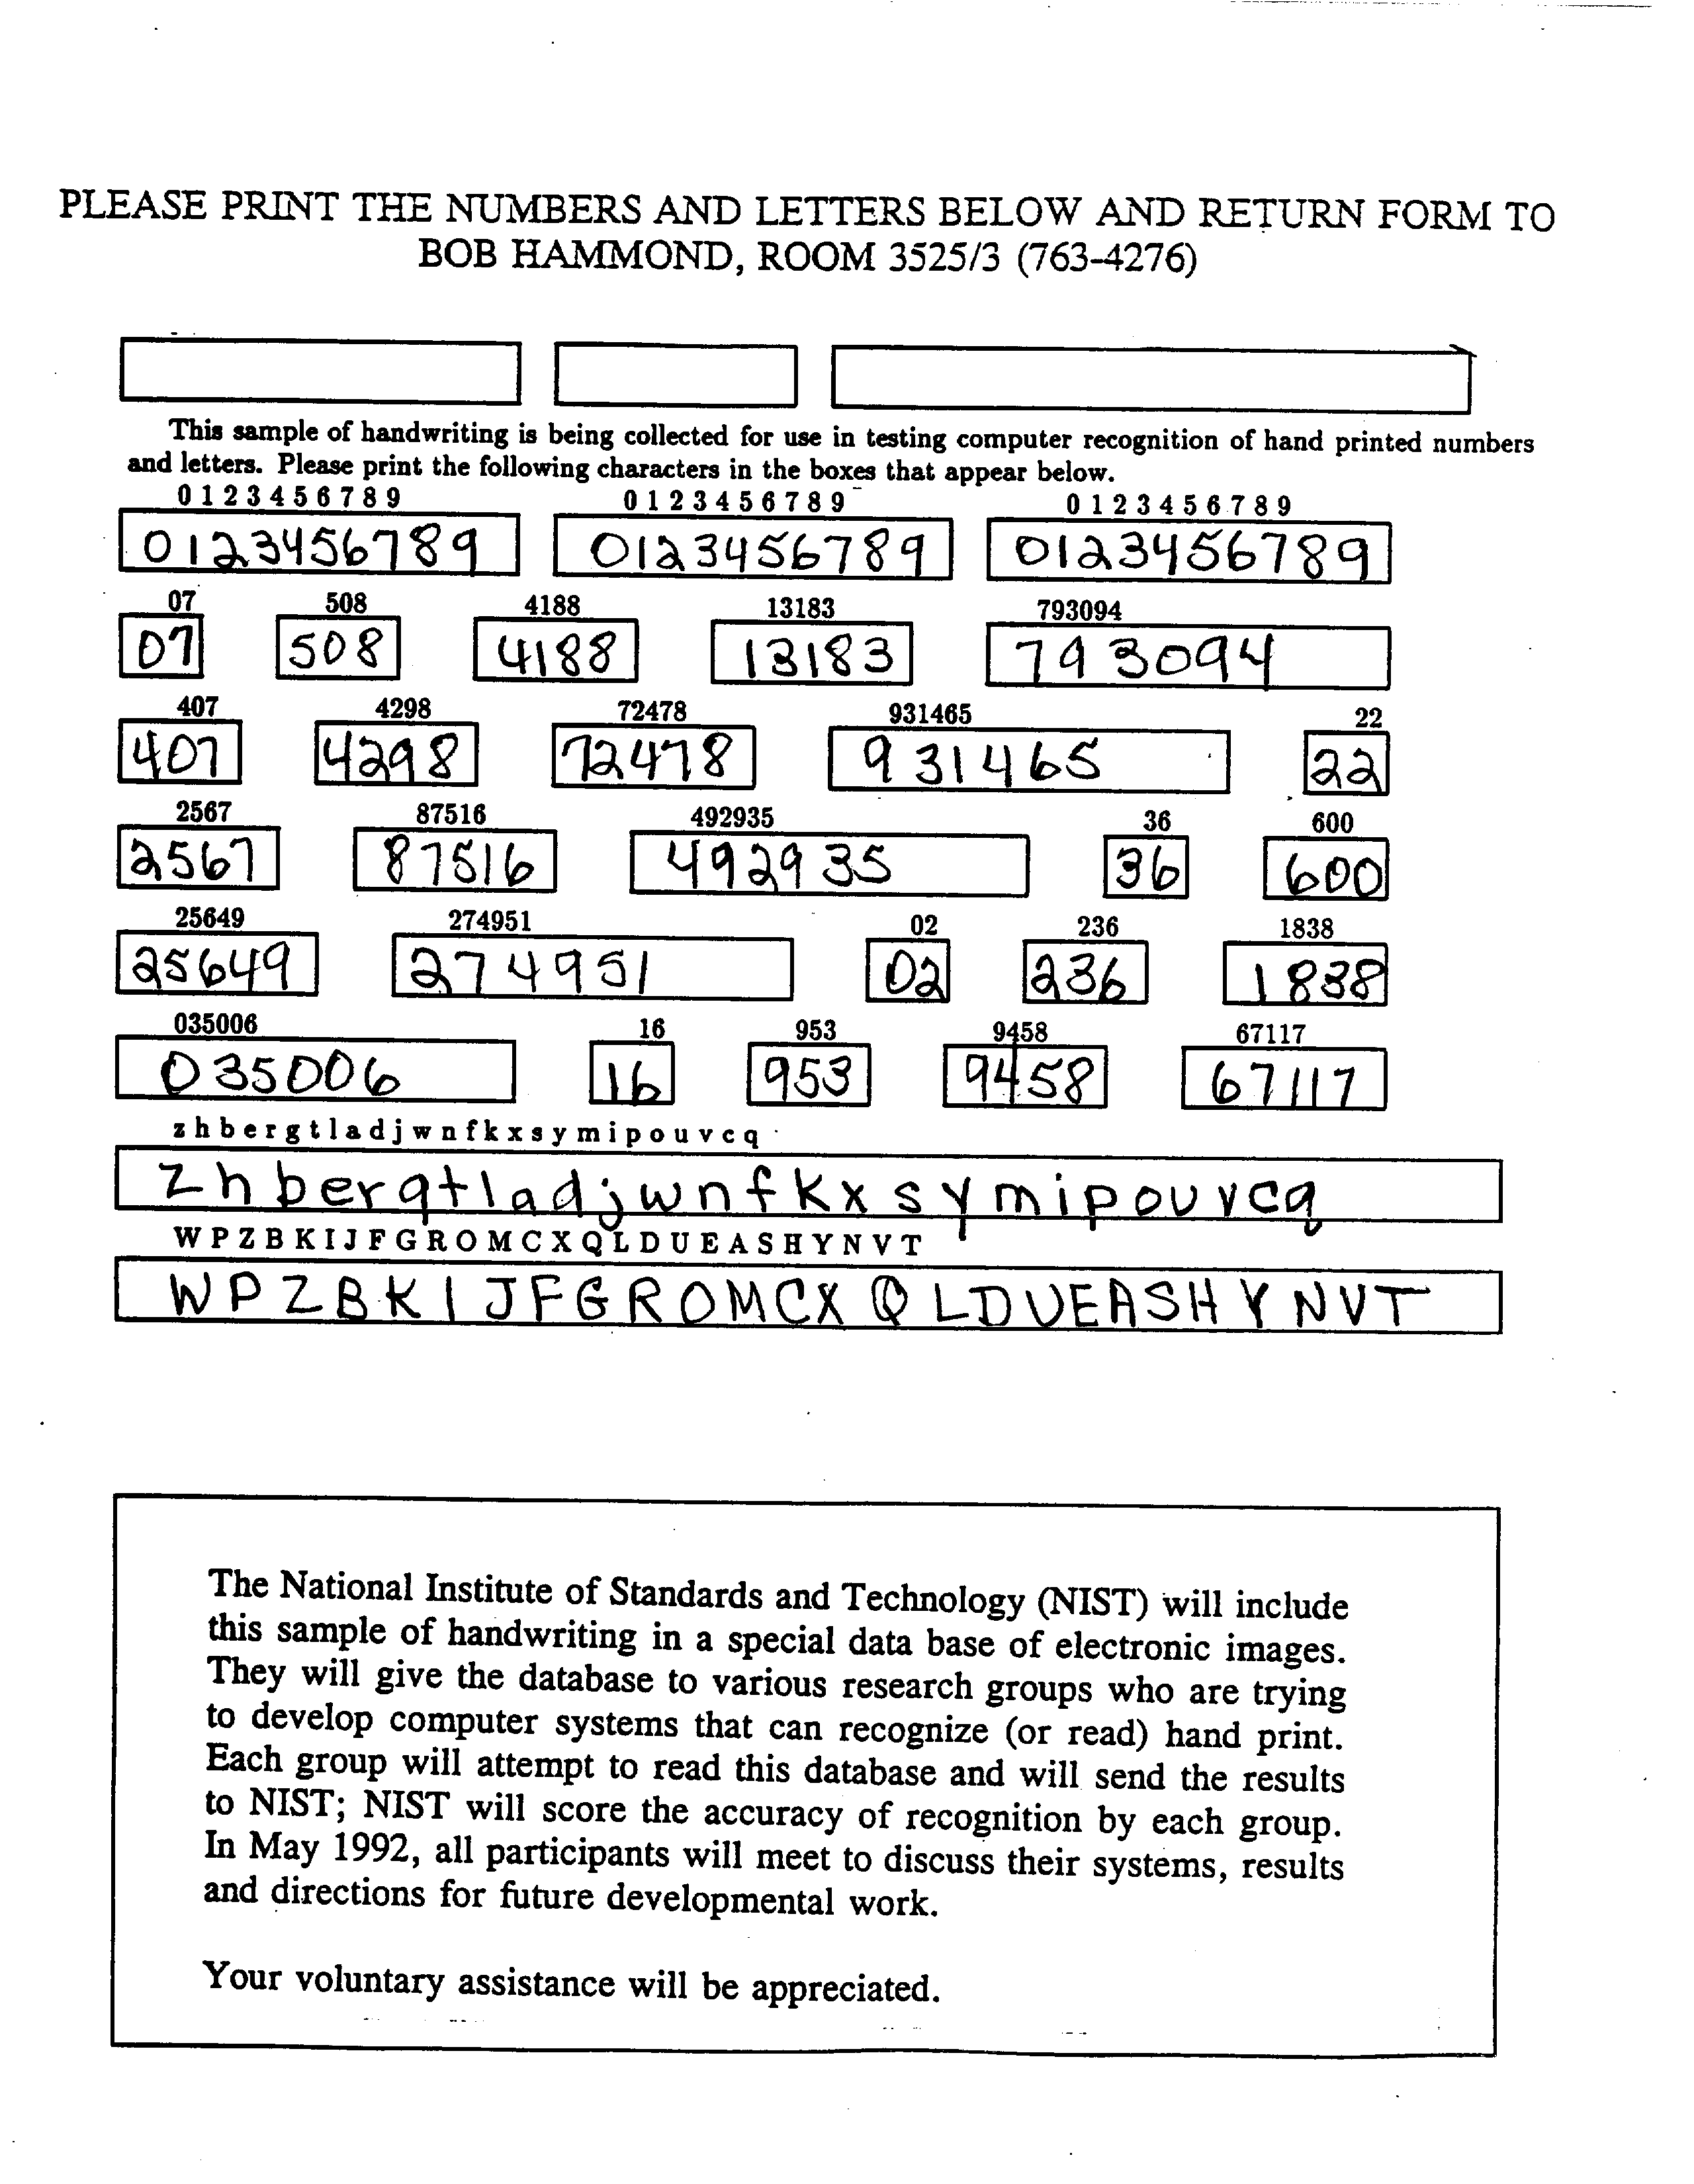 PLEASE PRINT THE NUMBERS AND LETTERS BELOW AND RETURN FORM TO
BOB HAMMOND, ROOM 3525/3 (763-4276)
This sample of handwriting is being collected for use in testing computer recognition of hand printed numbers
and letters. Please print the following characters in the boxes that appear below.
0 1 2 3 4 5 6 7 8 9 0 1 2 3 4 5 6 7 8 9 0 1 2 3 4 5 6 7 8 9
0123456789 0123456789 0123456789
07 508 4188 13183 793094
07 508 4188 13183 793094
407 4298 72478 931465 22
407 4298 72478 931465 22
2567 87516 492935 36 600
2567 87516 492935 36 600
25649 274951 02 236 1838
25649 274951 02 236 1838
035006 16 953 9458 67117
035006 16 953 9458 67117
z h b e r g t l a d j w n f k x s y m i p o u v c q
z h b e r g t l a d j w n f k x s y m i p o u v c q
W P Z B K I J F G R O M C X Q L D U E A S H Y N V T
W P Z B K I J F G R O M C X Q L D U E A S H Y N V T
The National Institute of Standards and Technology (NIST) will include
this sample of handwriting in a special data base of electronic images.
They will give the database to various research groups who are trying
to develop computer systems that can recognize (or read) hand print.
Each group will attempt to read this database and will send the results
to NIST; NIST will score the accuracy of recognition by each group.
In May 1992, all participants will meet to discuss their systems, results
and directions for future developmental work.
Your voluntary assistance will be appreciated.